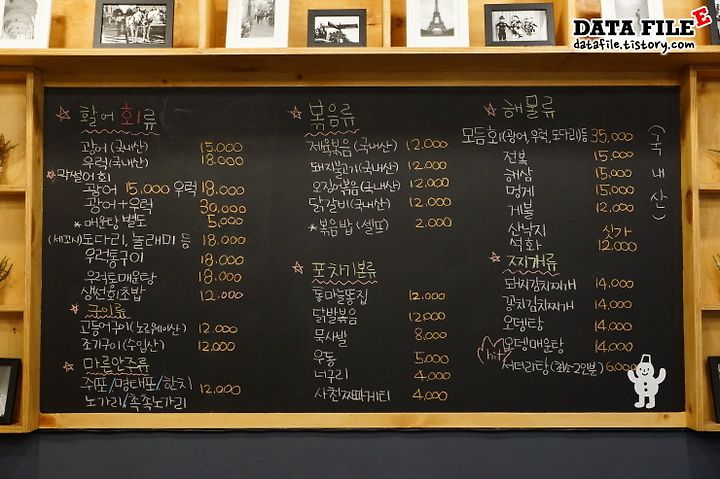 DATA FILE
datafile.tistory.com
☆ 활어 회류
광어 (국내산) 15,000
우럭 (국내산) 18,000
☆막썰어회
광어 15,000 우럭 18,000
광어+우럭 30,000
*매운탕 별도 5,000
(세꼬시)도다리, 놀래미 등 18,000
우럭통구이 18,000
우럭매운탕 18,000
생선회초밥 12,000
☆구이류
고등어구이(노르웨이산) 12,000
조기구이(수입산) 12,000
☆ 마른안주류
쥐포/명태포/한치 12,000
노가리/촉촉노가리
☆ 볶음류
제육볶음(국내산) 12,000
돼지불고기(국내산) 12,000
오징어볶음(국내산) 12,000
닭갈비(국내산) 12,000
*볶음밥 (셀프) 2,000
☆ 포차기본류
통마늘똥집 12,000
닭발볶음 12,000
묵사발 8,000
우동 5,000
너구리 4,000
사천짜파게티 4,000
☆ 해물류
(국내산)
모듬회(광어,우럭,도다리)등 35,000
전복 15,000
해삼 15,000
멍게 15,000
개불 12,000
산낙지 싯가
석화 12,000
☆찌개류
돼지김치찌개 14,000
꽁치김치찌개 14,000
오뎅탕 14,000
hit 오뎅매운탕 14,000
(최소2인분) 6,000